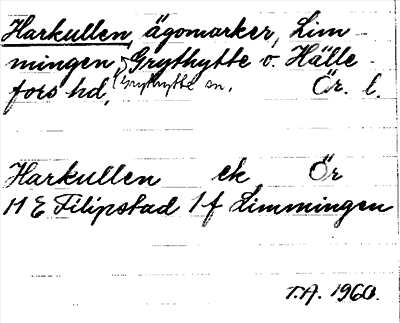 Harkullen, ägomarker, Lim
mingen, Grythytte o. Hälle
fors hd, (Grythytte sn. Ör. l.
Harkullen ek Ör
11 E Filipstad 1 f Limmingen
T.A. 1960.